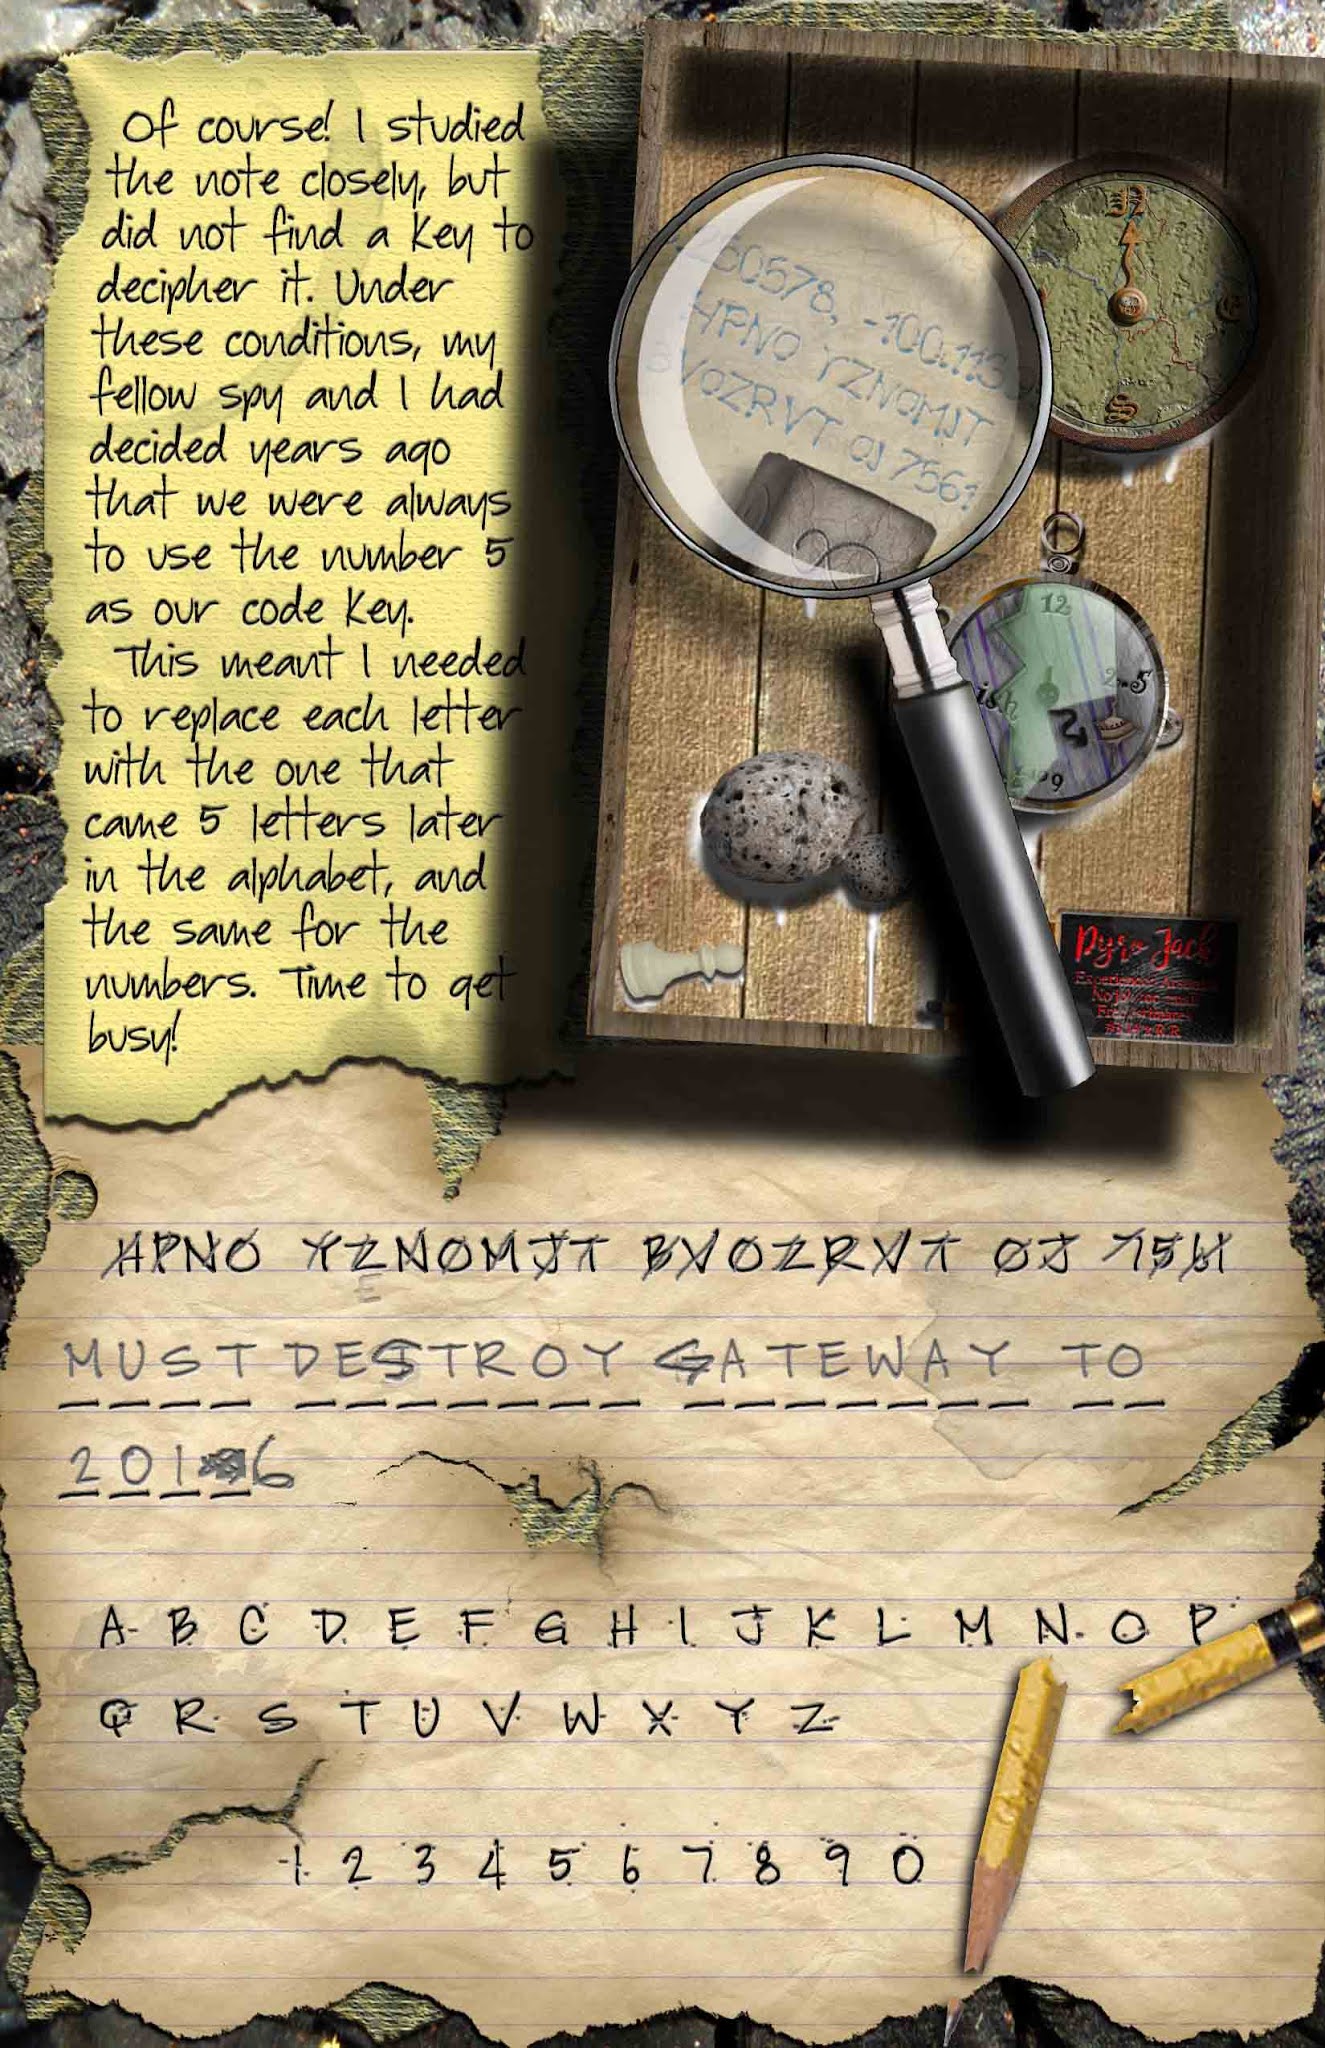 Of course! I studied
the note closely, but
did not find a key to
decipher it. Under
these conditions, my
fellow spy and I had
decided years ago
that we were always
to use the number 5
as our code key.
This meant I needed
to replace each letter
with the one that
came 5 letters later
in the alphabet, and
the same for the
numbers. Time to get
busy!
60578, -100.113
HPNO YZNOMJT
BVOZRVT OJ 7561
N
S
12
2..5
ish
9
Pyro Jack
HPNO YZNOMJT BVOZRVT OJ 7561
E
MUST DESTROY GATEWAY TO
2016
A B C D E F G H I J K L M N O P
Q R S T U V W X Y Z
1 2 3 4 5 6 7 8 9 0